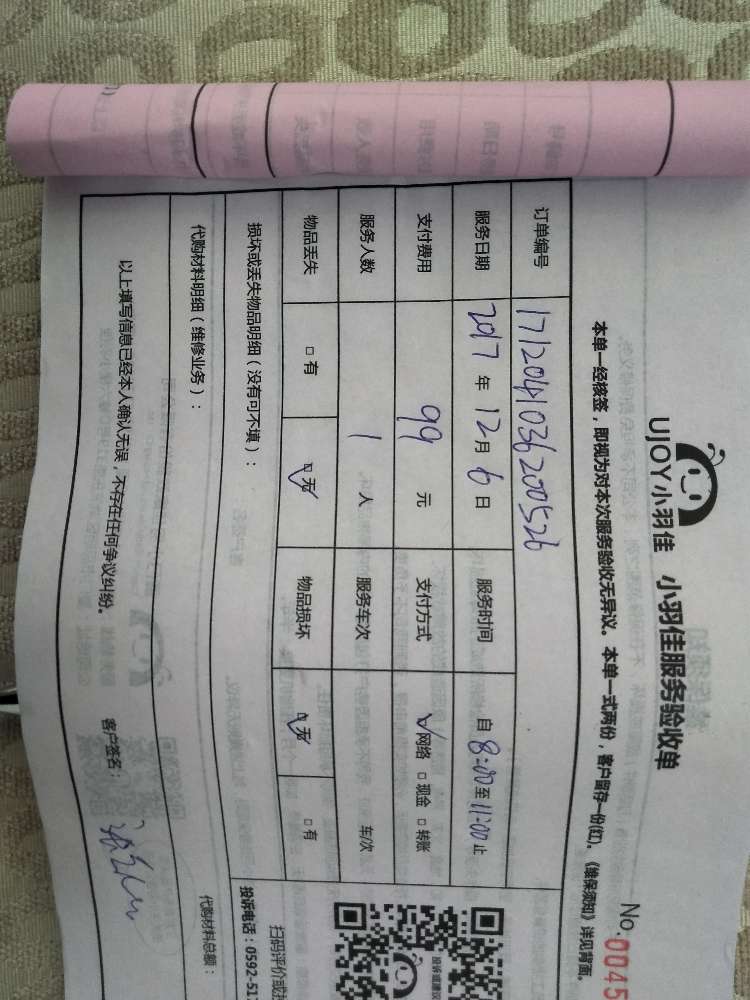 UJOY小羽佳 小羽佳服务验收单
No.0045
本单一经核签，即视为对本次服务验收无异议。本单一式两份，客户留存一份(红)。《维保须知》详见背面。
订单编号 1712041036200526
服务日期 2017 年 12 月 6 日 服务时间 自 8:00 至 11:00 止
支付费用 99 元 支付方式 网络 □ 现金 □ 转账
服务人数 1 人 服务车次 车/次
物品丢失 □ 有 □ 无 物品损坏 □ 无 □ 有
损坏或丢失物品明细（没有可不填）：
代购材料明细（维修业务）： 代购材料总额：
以上填写信息已经本人确认无误，不存在任何争议纠纷。 客户签名：
扫码评价或投
投诉电话：0592-51